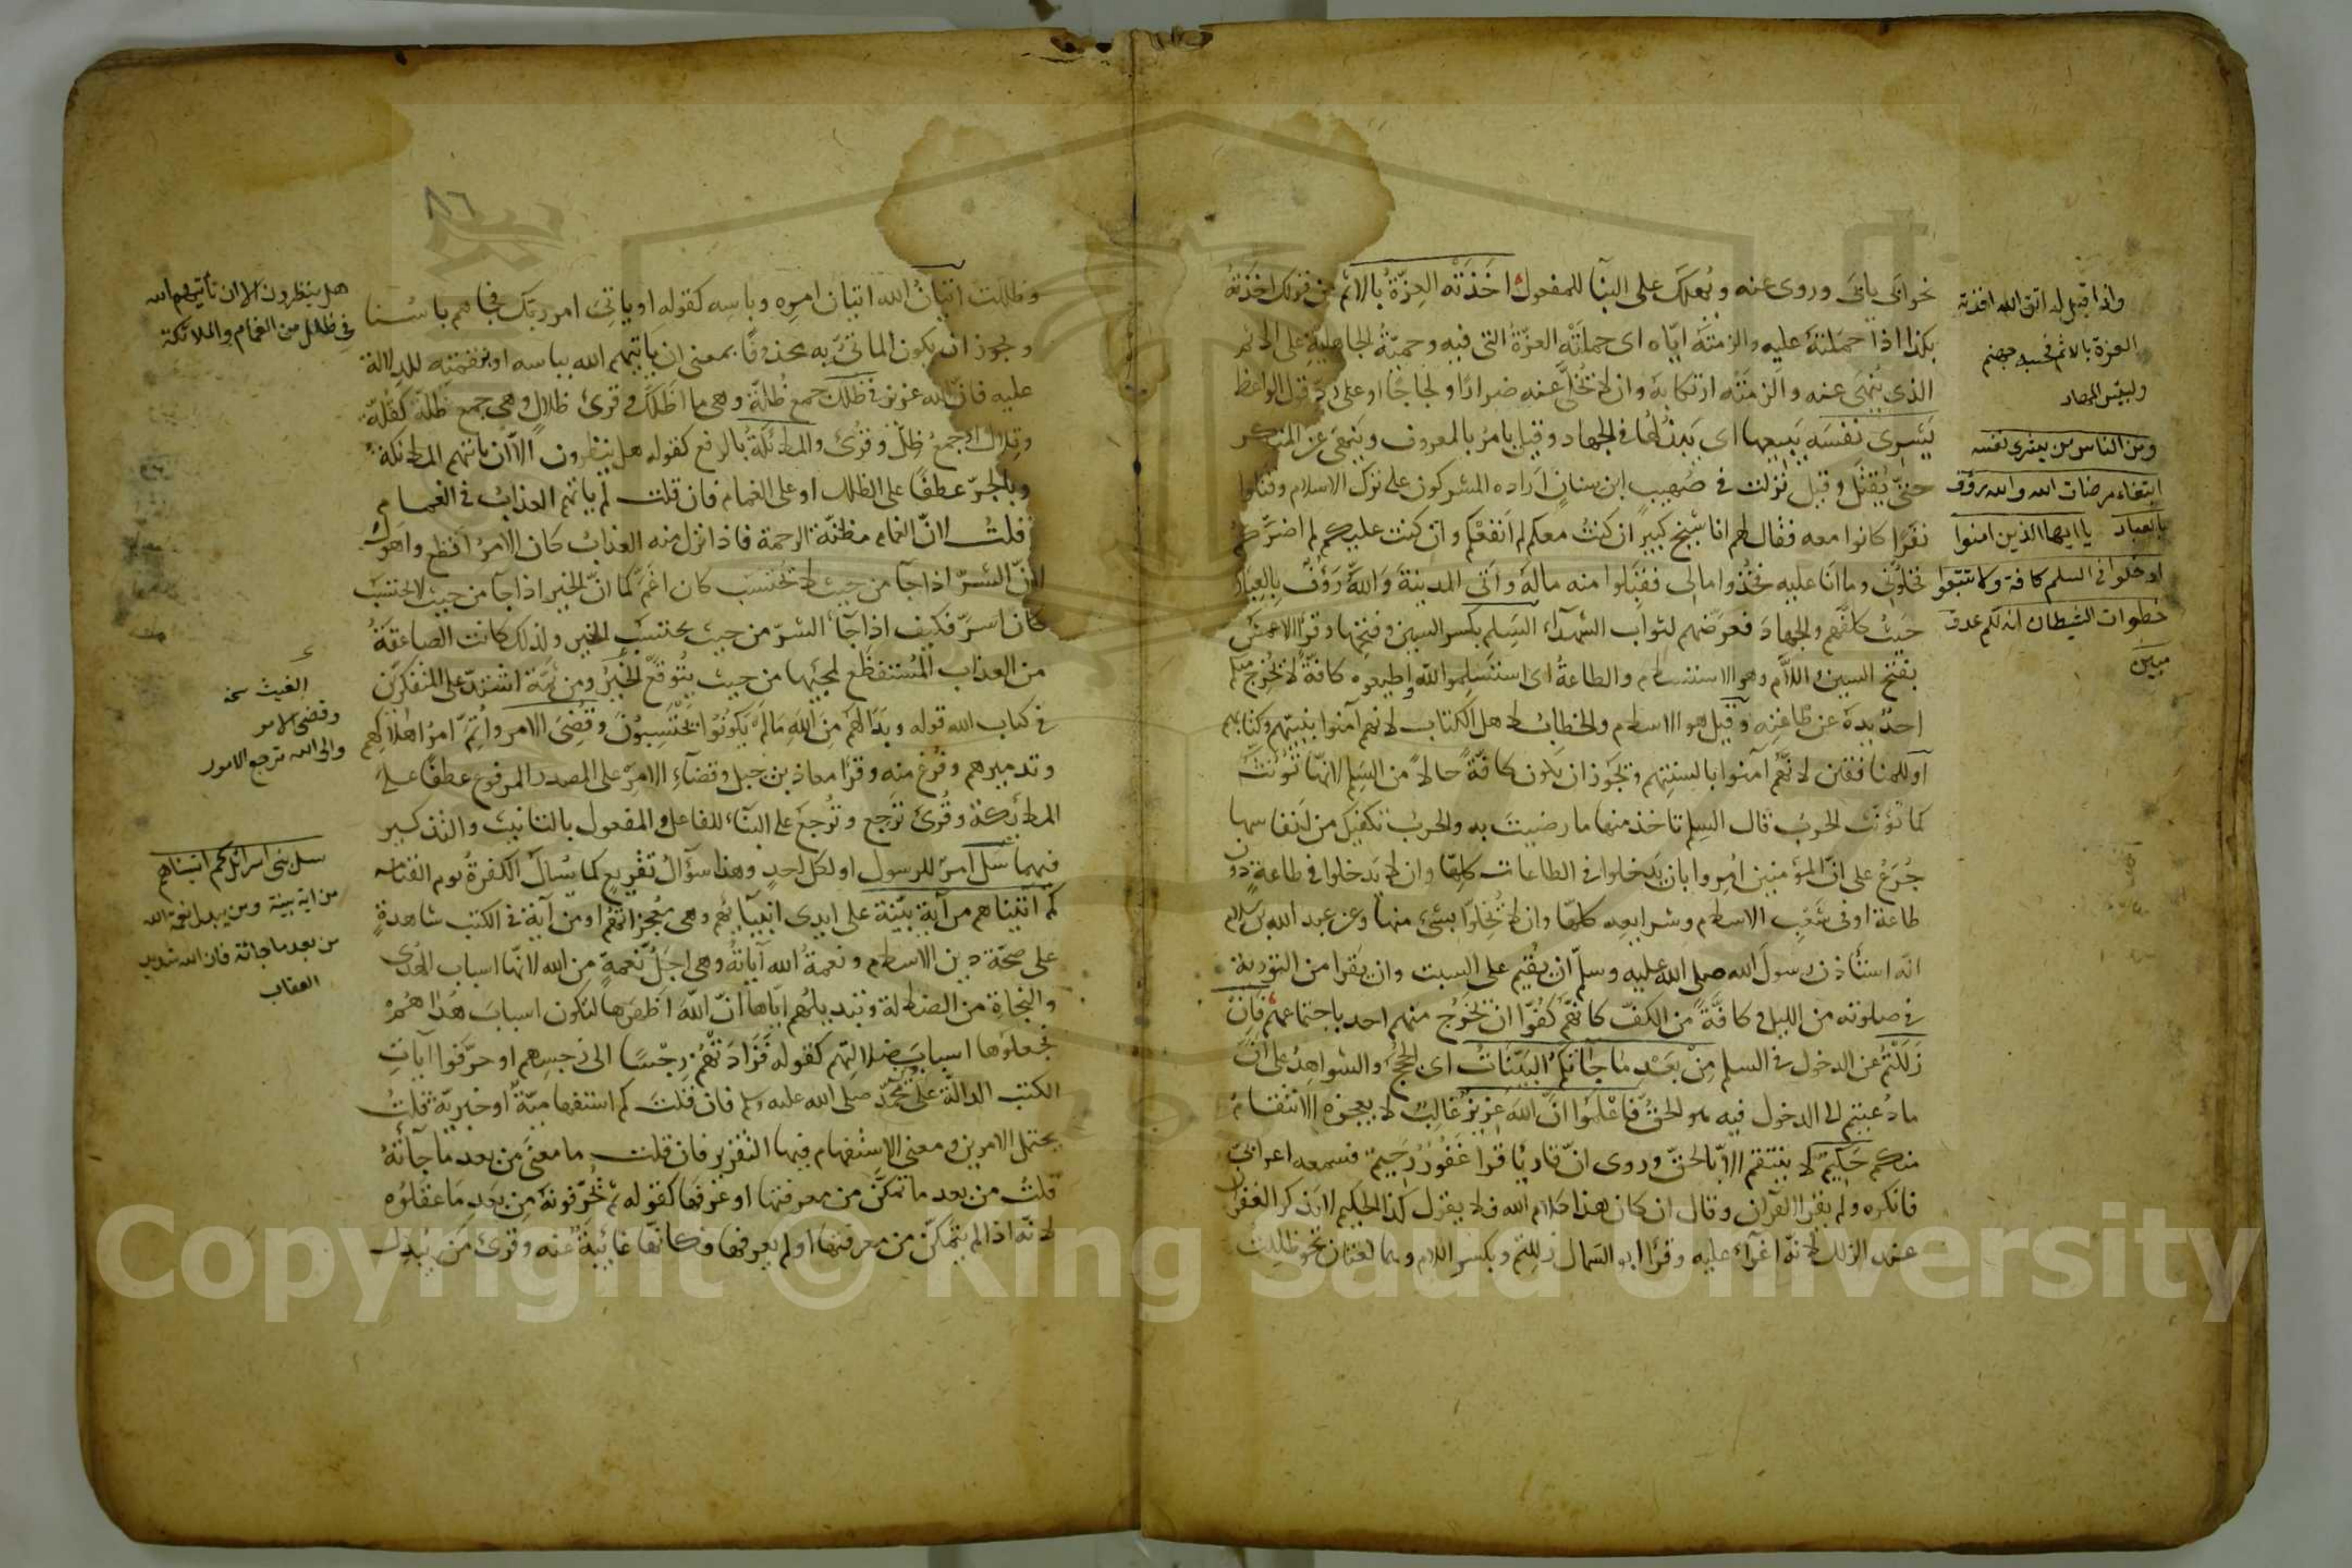 نحو ابَى يابَى وروى عنه ويُهلَك على البنآ للمفعول اخَذَتْه العِزّةُ بالاثم من قولك اخذتُه
بكذا اذا حمَلتهُ عليه والزمتَهُ ايّاه اى حملَتْه العزّةُ التى فيه وحميّةُ الجاهليةِ على الاثم
الذى يُنهى عنه والزمَتْه ارتكابهُ وان لا يُخلّى عنه ضرارًا ولَجاجًا او على ردّ قول الواعظ
يَشرِى نفسَه يَبيعها اى يَبذُلُها فى الجهاد وقيل يامرُ بالمعروف ويَنهى عن المنكر
حتّى يُقتَل وقيل نزلت فى صُهيب ابن سنانٍ اَراده المشركون على ترك الاسلام وقتلوا
نفَرًا كانوا معه فقال لهم انا شيخ كبير ان كنتُ معكم لم اَنفعْكم وان كنت عليكم لم اضرَّكم
فخلوّنى وما انَا عليه وخُذوا مالى فقبَلوا منه مالهُ واَتى المدينةَ وَاللّهُ رَؤفٌ بِالعِبَاد
حيثُ كلّفَهم الجهادَ فعرّضهم لثواب الشهدآء السّلِم بكسر السين وفتحِها وقرأ الاعمش
بفتح السين واللاّم وهو الاستسلام والطاعةُ اى استَسلِموا للّه واطيعوه كافّةً لا يُخرج منكم
احدٌ يدهُ عن طاعَتِه وقيل هو الاسلام والخطابُ لاهل الكتاب لانهم آمنوا بنبيّهم وكتابهم
او للمنافقين لانّهم آمنوا بالسنتهم ويجوز ان يكون كافّةً حالاً من السّلِم لانّها تُؤنّثُ
كما تُؤنّث الحربُ قال السِلم تاخذ منها ما رضيتَ به والحربُ تكفيك من انفاسها
جُرَعُ على انّ المؤمنين اُمِروا بان يَدخلوا فى الطاعات كلِّها وان لا يَدخلوا فى طاعةٍ دون
طاعة او فى شُعَبِ الاسلام وشرايعِه كلها وان لا يُخِلّوا بشئ منها وعن عبد الله بن سلام
انّه استأذن رسولَ الله صلى الله عليه وسلّم ان يُقيم على السبت وان يقرا من التورية
فى صلوته من الليل وكافّةً من الكفّ كانّهم كَفُّوا ان يخرُج منهم احد باجتماعهم فاِنْ
زَلَلْتُم عن الدخول فى السلم مِنْ بَعْدِ مَا جَآئتكم البَيّنَاتُ اى الحُججُ والشواهِدُ على انّ
ما دُعيتم الى الدخول فيه هو الحقُّ فَاعْلَموُا انَّ اللّهَ عَزِيزٌ غالِبٌ لا يُعجزه الانتقامُ
منكم حَكِيمٌ لا ينتقم الاّ بالحقّ وروى انّ قاريًا قرا غَفُوْرٌ رَحِيمٌ فسمعه اعرابىّ
فانكره ولم يقرا القرآن وقال ان كان هذا كلام الله فلا يقول كذا الحكيم لا يذكر الغفران
عند الزلل لانّه اغرآء عليه وقرأ ابو السمال زلِلتم بكسر اللام وهما لغتان نحو ظلِلت
واذا قيل له اتق الله اخذته
العزة بالاثم فحسبه جهنم
ولبئس المهاد
ومن الناس من يشرى نفسه
ابتغاء مرضات الله والله رؤف
بالعباد يا ايها الذين امنوا
ادخلوا فى السلم كافة ولا تتبعوا
خطوات الشيطان انه لكم عدو
مبين
٨٦
وظللت اتيانُ اللّه اتيان امرِه وباسِه كقوله او ياتِىَ امر ربّك فجاهم باسُنا
ويجوز ان يكون الماتىُّ به محذوفًا بمعنى ان ياتيهم الله بباسه او بنقمته للدلالة
عليه فان الله عزيز فى ظُلَلٍ جمع ظُلّةٍ وهى ما اظلّك وقرئ ظلالٍ وهى جمع ظُلّة كقُلّة
وقِلال او جمعُ ظلّ وقرئ والملائكةُ بالرفع كقوله هل ينظرون الاّ ان ياتيهم الملائكة
وبالجرّ عطفًا على الظلل او على الغمام فان قلت لم ياتيهم العذابُ فى الغمام
قلتُ لانّ الغمام مظنّةُ الرحمة فاذا نزل منه العذابُ كان الامرُ افظع واهول
لانّ الشرّ اذا جآ من حيث لا يُحتسب كان اغَمَّ كما انّ الخير اذا جآ من حيث لا يحتسب
كان اسرَّ فكيف اذا جآء الشرّ من حيث يحتسب الخير ولذلك كانت الصاعقةُ
من العذاب المُستفظَع لمجيئها من حيث يُتوقّع الخيرُ ومن ثمّة اشتدّ على المتفكرين
فى كتاب الله قوله وبَدَا لَهُمْ مِنَ اللّهِ مَا لَمْ يَكُونُوا يَحْتَسِبُونَ وقُضِىَ الامر واُتِمّ امرُ اهلاكِهم
وتدميرهم وفُرغ منه وقرأ معاذ بن جبل وقضآءُ الامرِ على المصدر المرفوع عطفًا على
الملائكة وقُرئ تَرجِع وتُرجَع على البنآء للفاعل والمفعول بالتانيث والتذكير
فيهما سَلْ امرٌ للرسول او لكل احدٍ وهذا سؤالُ تقريعٍ كما يُسألُ الكفرةُ يوم القيامة
كم اتيناهم من آيةٍ بيّنة على ايدى انبيآئهم وهى مُعجزاتهُم او من آيةٍ فى الكتب شاهدةٍ
على صحّة دين الاسلام ونعمةُ الله آياتُهُ وهى اجلُّ نعمةٍ من الله لانّها اسباب الهدى
والنجاةِ من الضلالة وتبديلُهم ايّاها انّ اللّهَ اَظهَرها لتكون اسبابَ هُدَاهُمْ
فجعلوُها اسبابَ ضلالتِهم كقوله فَزَادَتْهُمْ رِجْسًا الى رِجسِهم او حرّفوا آيات
الكتب الدالّة على محمّد صلى الله عليه وسلم فان قلتَ كم استفهاميّةٌ او خبريّةٌ قلتُ
يحتمل الامرين ومعنى الاستفهام فيها التقرير فان قلت ما معنَى من بعد ما جآئَتْهُ
قلتُ من بعد ما تمكّن من معرفتها او عرَفها كقوله ثم يُحَرّفونهُ مِن بَعدِ مَا عقَلوُه
لانّه اذا لم يتمكّن من معرفتها او لم يعرفها فكانّها غائبةٌ عنه وقرئ من يُبدِل
هل ينظرون الا ان تأتيهم الله
فى ظلل من الغمام والملائكة
الغيث نسخه
وقضى الامر
والى الله ترجع الامور
سل بنى اسرائل كم اتيناهم
من اية بينة ومن يبدل نعمة الله
من بعد ما جائته فان الله شديد
العقاب
Copyright © King Saud University